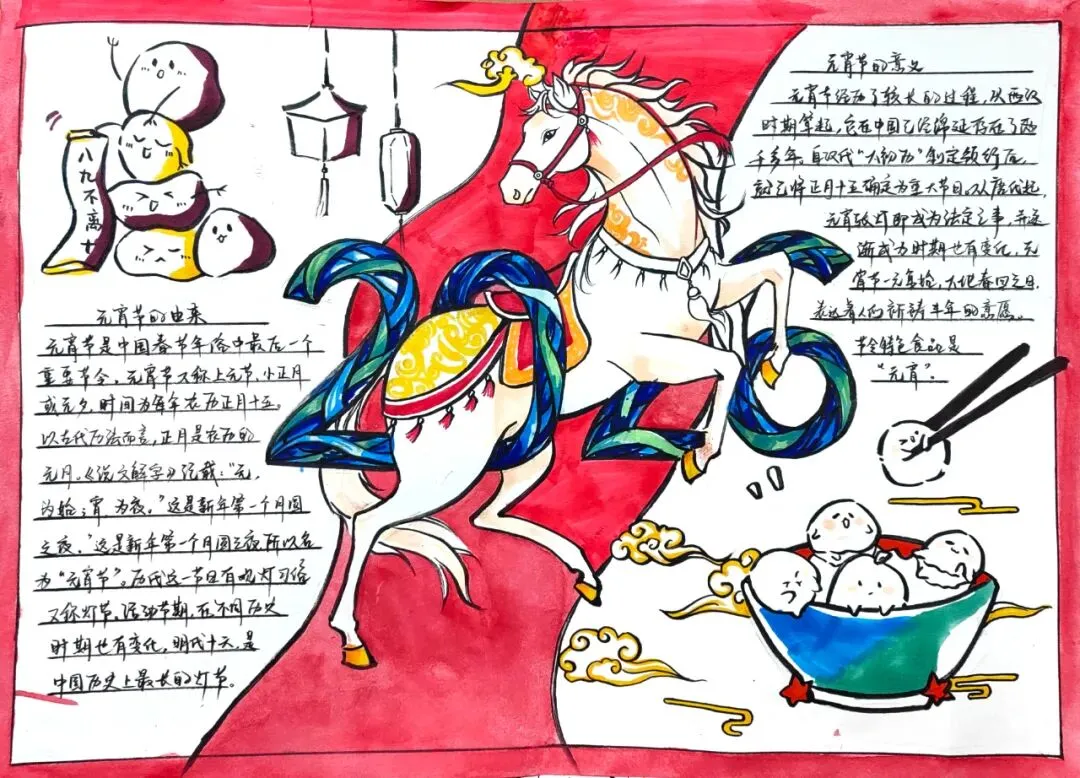 八九不离十
元宵节的由来
元宵节是中国春节年俗中最后一个
重要节令。元宵节又称上元节,小正月
或元夕,时间为每年农历正月十五。
以古代历法而言,正月是农历的
元月。《说文解字》记载:"元,
为始;宵 为夜。"这是新年第一个月圆
之夜。"这是新年第一个月圆之夜,所以名
为"元宵节"。历代这一节日有观灯习俗
又称灯节。活动节期,在不同历史
时期也有变化,明代十六,是
中国历史上最长的灯节。
2026
元宵节的意义
元宵节经历了较长的过程,从西汉
时期算起,它在中国已经绵延存在了两
千多年。自汉代"太初历"制定颁行后,
就已将正月十五确定为重大节日。从唐代起,
元宵放灯即成为法定之事,并逐
渐成为时期也有变化,元
宵节一元复始,大地春回之日,
表达着人们祈祷丰年的意愿。
节令特色食品是
"元宵".